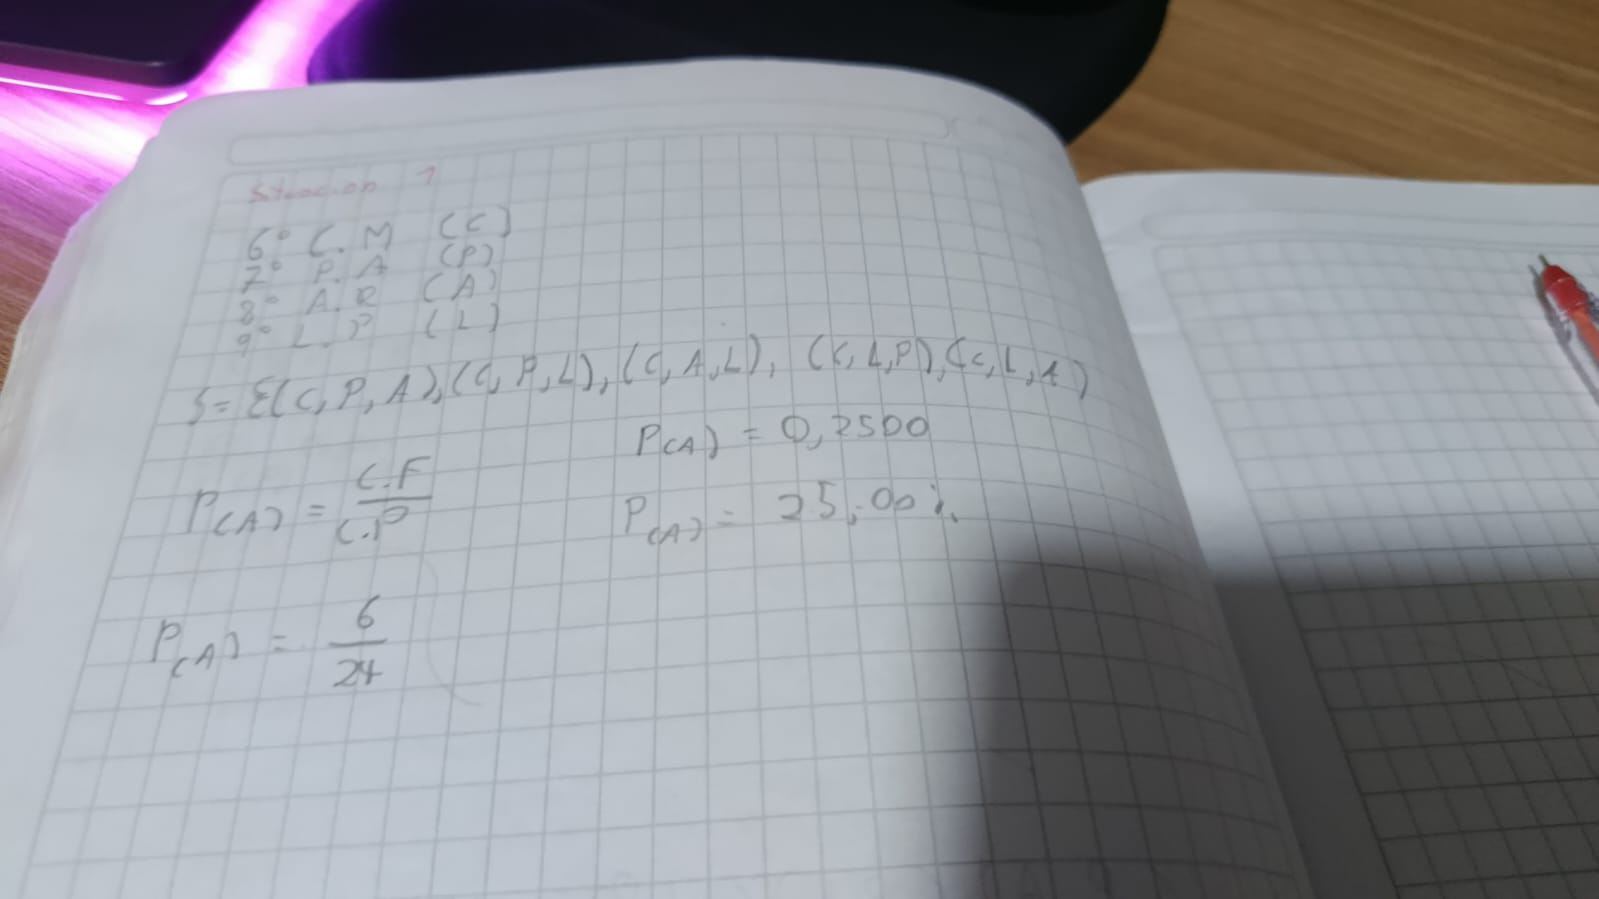 Situacion 1
6° C. M (C)
7° P. A (P)
8° A. R (A)
9° L. P (L)
S= {(C, P, A), (C, P, L), (C, A, L), (C, L, P), (C, L, A)
P(A) = C.F / C.P
P(A) = 0,2500
P(A) = 25,00%
P(A) = 6 / 24